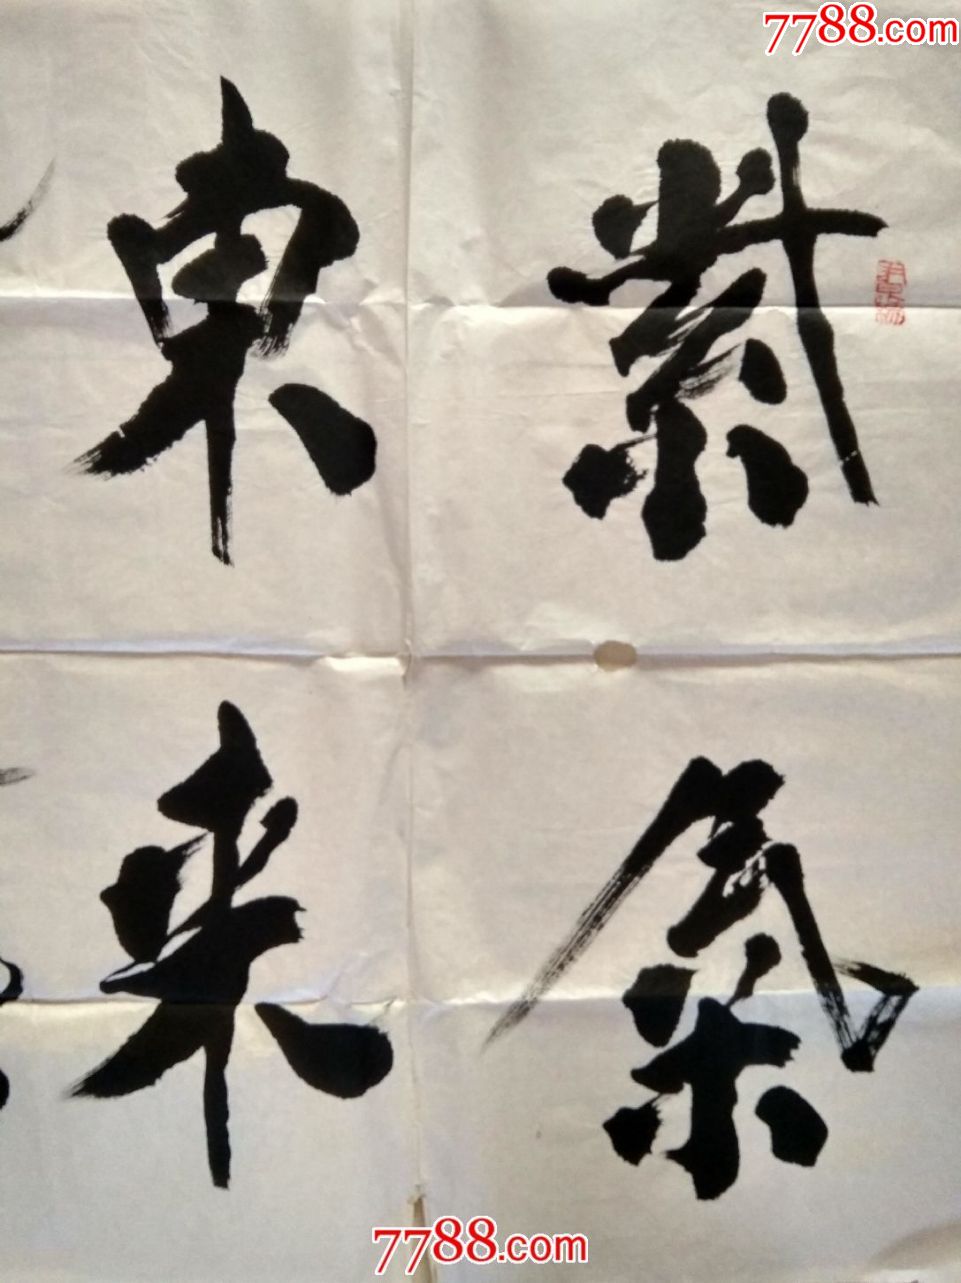 7788.com
紫氣
東來
7788.com